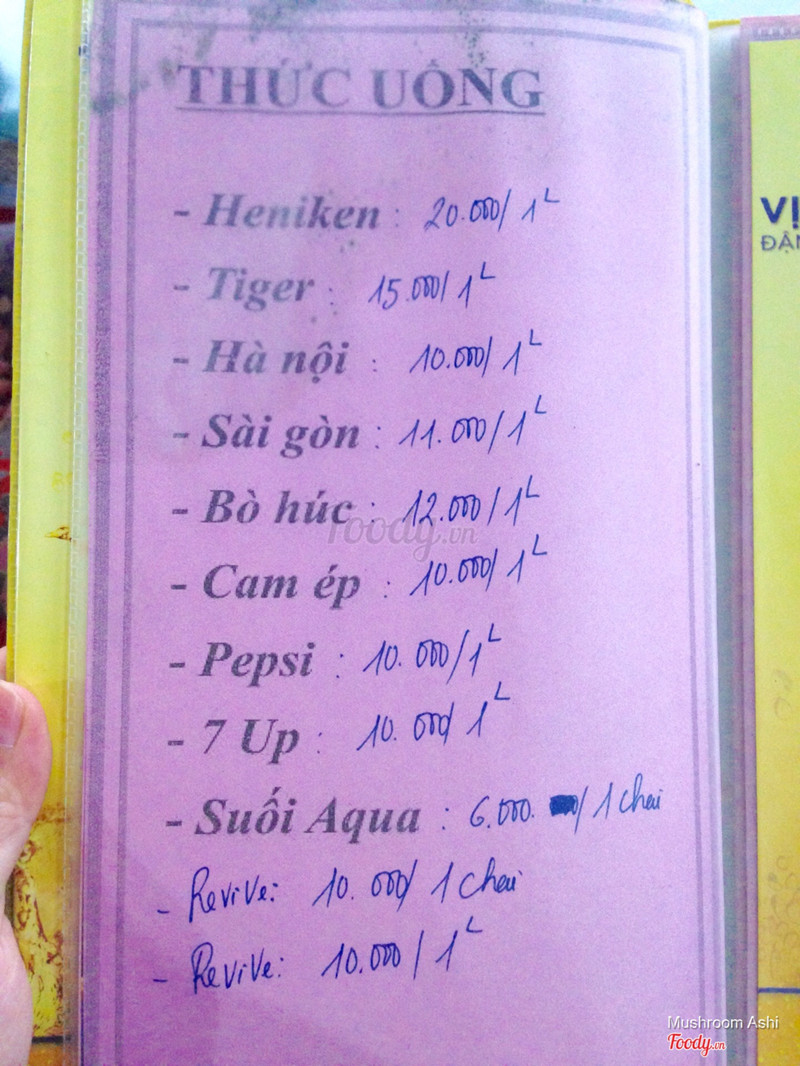 THỨC UỐNG
- Heniken : 20.000/ 1L
- Tiger : 15.000/ 1L
- Hà nội : 10.000/ 1L
- Sài gòn : 11.000/ 1L
- Bò húc : 12.000/ 1L
- Cam ép : 10.000/ 1L
- Pepsi : 10.000/ 1L
- 7 Up : 10.000/ 1L
- Suối Aqua : 6.000. / 1 chai
- Revive: 10.000/ 1 chai
- Revive: 10.000/ 1L
foody.vn
VỊ
ĐẬN
Mushroom Ashi
Foody.vn